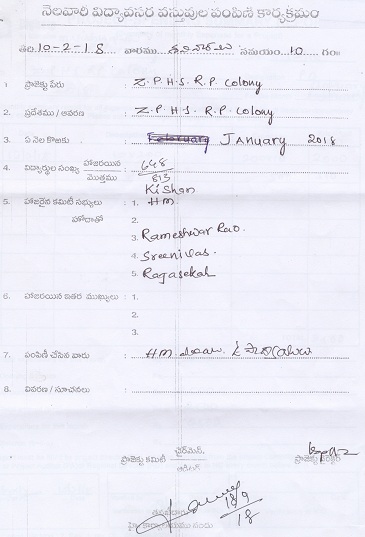 నెలవారి విద్యావసర వస్తువుల పంపిణి కార్యక్రమం
తేది 10-2-18 వారము శనివారం సమయం 10 గం॥
1. ప్రాజెక్టు పేరు : Z.P.H.S. R.P. Colony
2. ప్రదేశము / ఆవరణ : Z.P.H.S R.P. Colony
3. ఏ నెల కొఱకు : February January 2018
4. విద్యార్థుల సంఖ్య హాజరయిన : 648
మొత్తము 813
Kishan
5. హాజరైన కమిటీ సభ్యులు : 1. HM
హోదాతో 2.
3. Rameshwar Rao.
4. Sreenivas
5. Ragasekah
6. హాజరయిన ఇతర ముఖ్యులు : 1.
2.
3.
7. పంపిణి చేసిన వారు : HM
8. వివరణ / సూచనలు :
ప్రాజెక్టు కమిటీ ఛైర్మెన్.
18/9
18